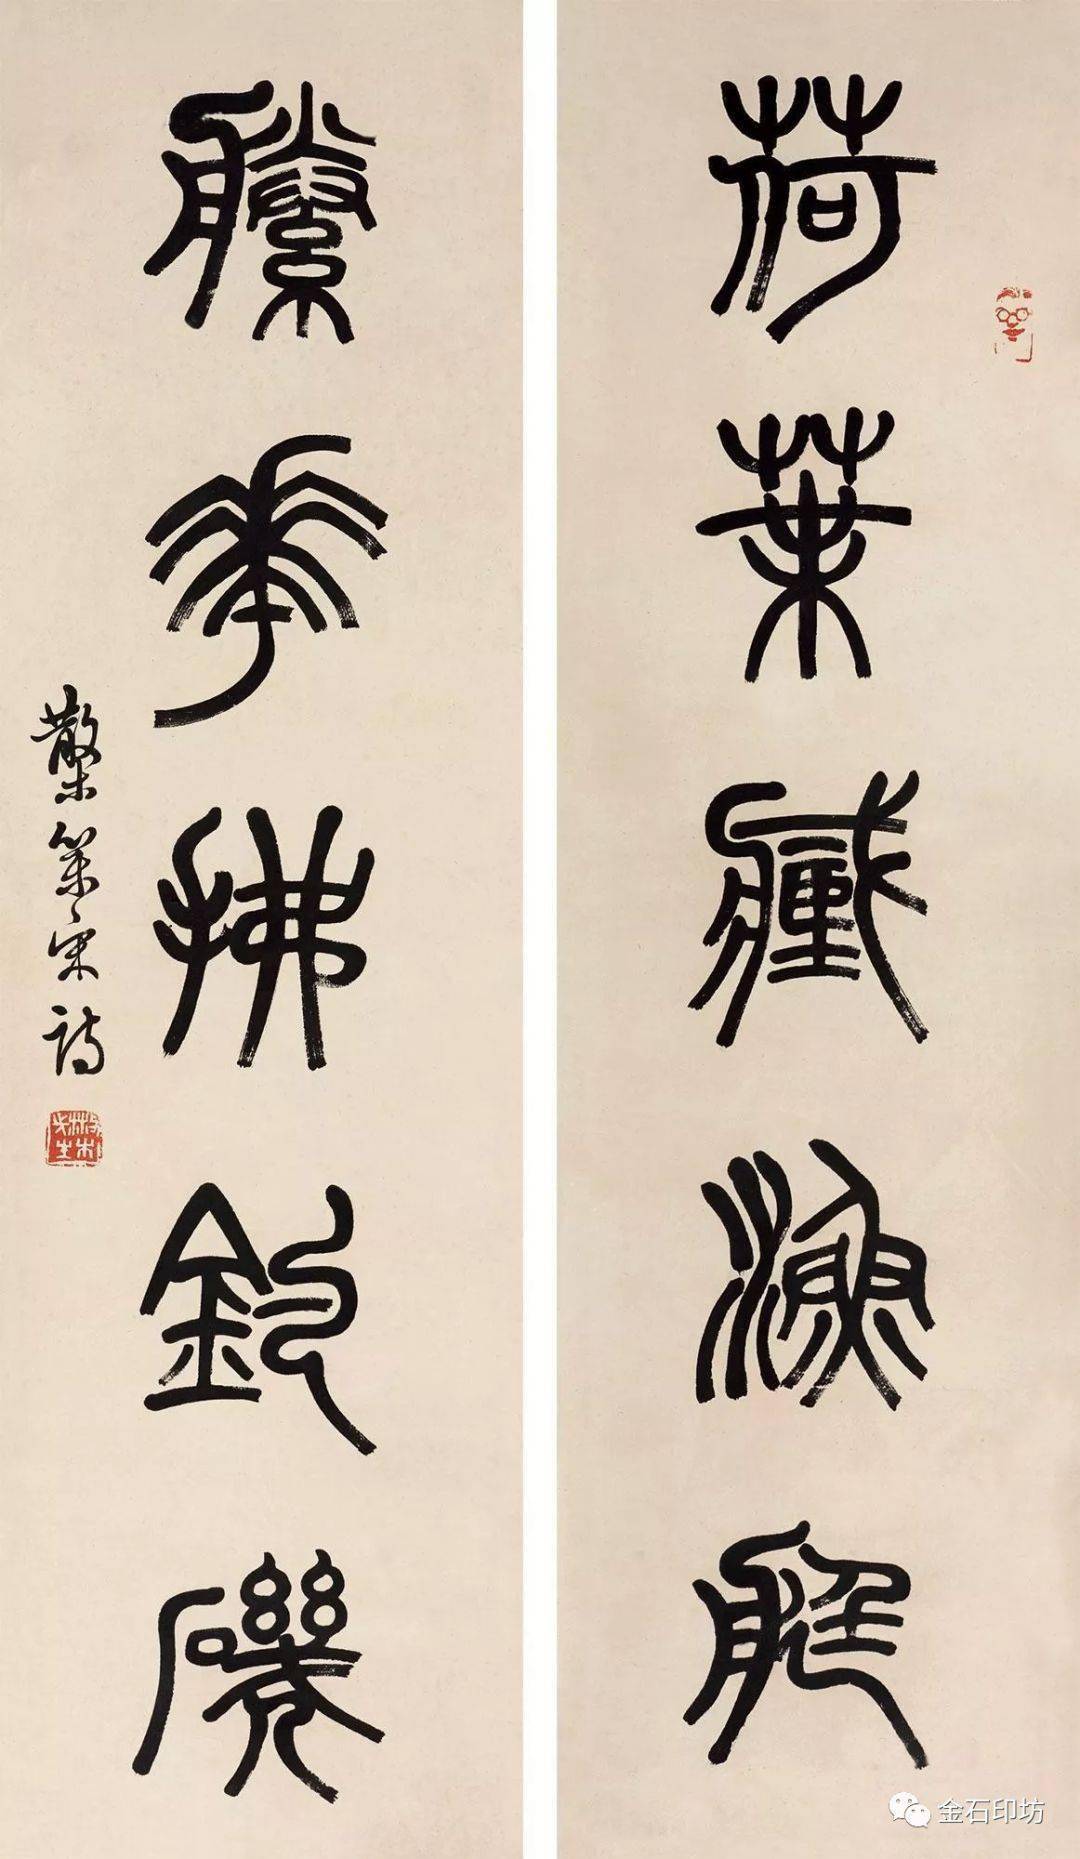 荷葉藏漁艇
縢華拂釣磯
散木宋詩
金石印坊